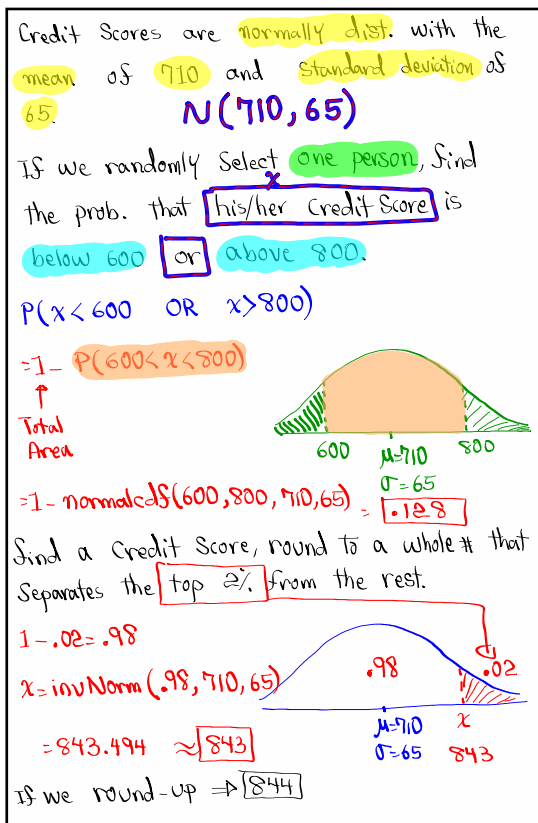 Credit Scores are normally dist. with the
mean of 710 and standard deviation of
65. N(710,65)
If we randomly Select one person, find
x
the prob. that his/her Credit Score is
below 600 or above 800.
P(x<600 OR x>800)
=1- P(600<x<800)
Total
Area
600 800
μ=710
σ=65
=1-normalcdf(600,800,710,65) = .128
find a Credit Score, round to a whole # that
Separates the top 2% from the rest.
1-.02=.98
.98 .02
x=invNorm(.98,710,65)
μ=710 x
σ=65 843
=843.494 ≈ 843
If we round-up ⇒ 844